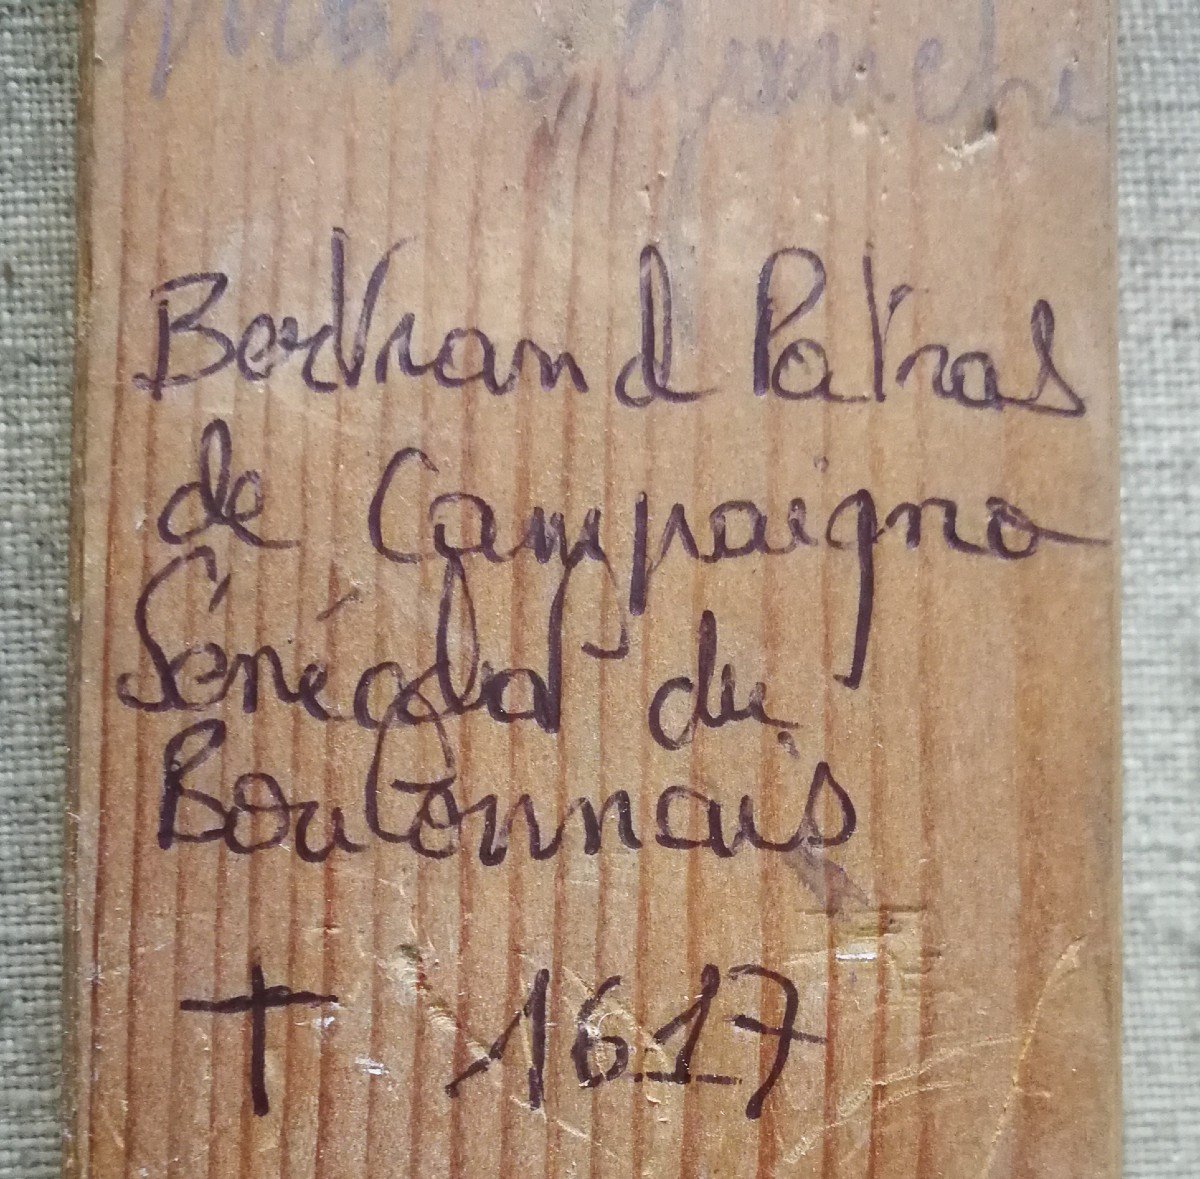 Bertrand Patras
de Campaigno
Sénéchal du
Boulonnais
† 1617